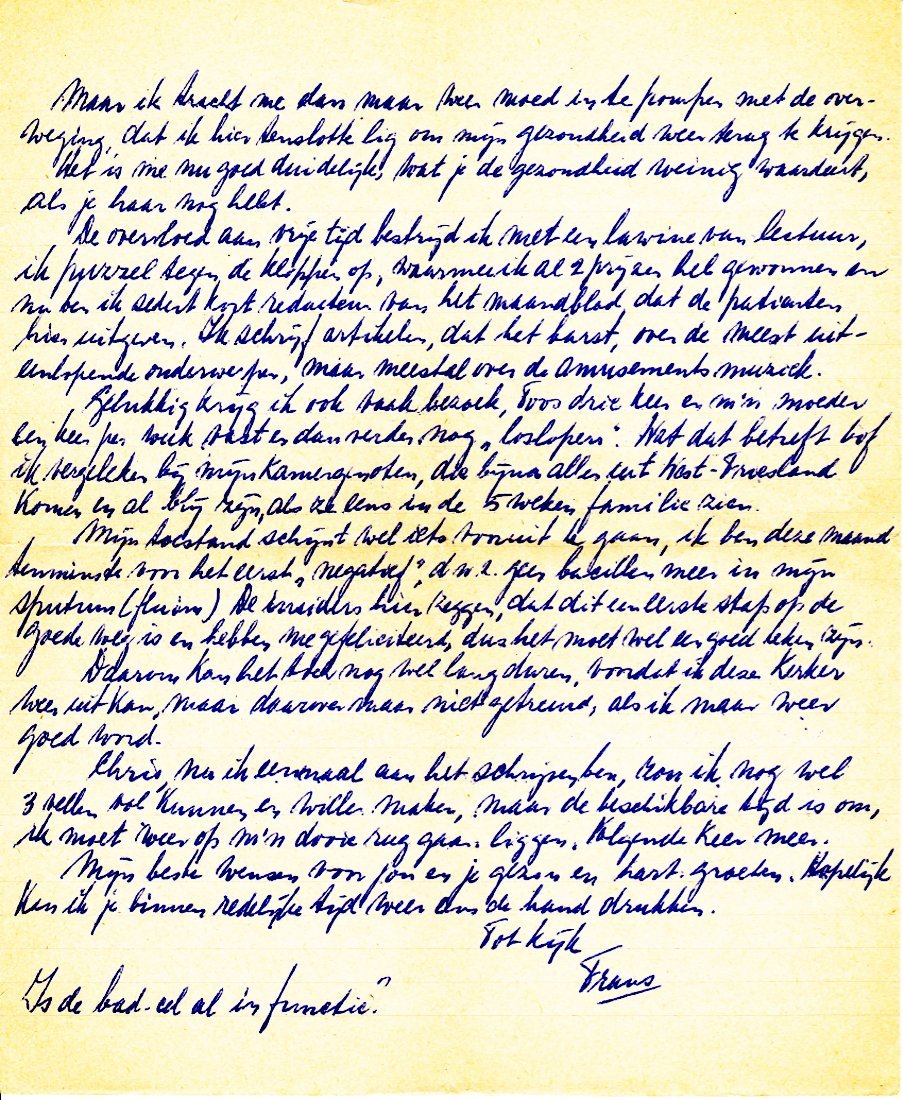 Maar ik tracht me dan maar weer moed in te pompen met de over-
weging, dat ik hier tenslotte lig om mijn gezondheid weer terug te krijgen.
Het is me nu goed duidelijk, wat je de gezondheid weinig waardeert,
als je haar nog hebt.
De overvloed aan vrije tijd bestrijd ik met een lawine van lectuur,
ik puzzel tegen de klippen op, waarmee ik al 2 prijzen heb gewonnen en
nu ben ik sedert kort redacteur van het maandblad, dat de patienten
hier uitgeven. Ik schrijf artikelen, dat het barst, over de meest uit-
eenlopende onderwerpen, maar meestal over de amusementsmuziek.
Gelukkig krijg ik ook vaak bezoek, Toos drie keer en m'n moeder
een keer per week vast en dan verder nog „loslopers”. Wat dat betreft bof
ik vergeleken bij mijn kamergenoten, die bijna allen uit West-Friesland
komen en al blij zijn, als ze eens in de 5 weken familie zien.
Mijn toestand schijnt wel iets vooruit te gaan, ik ben deze maand
tenminste voor het eerst „negatief”, d.w.z. geen bacillen meer in mijn
sputum (fluim) De insiders hier zeggen, dat dit een eerste stap op de
goede weg is en hebben me gefeliciteerd, dus het moet wel een goed teken zijn.
Daarom kan het toch nog wel lang duren, voordat ik deze kerker
weer uit kan, maar daarover maar niet getreurd, als ik maar weer
goed word.
Chris, nu ik eenmaal aan het schrijven ben, zou ik nog wel
3 vellen vol kunnen en willen maken, maar de beschikbare tijd is om,
ik moet weer op m'n dooie rug gaan liggen. Volgende keer meer.
Mijn beste wensen voor jou en je gezin en hart. groeten. Hopelijk
kan ik je binnen redelijke tijd weer eens de hand drukken.
Tot kijk
Frans
Is de bad-cel al in functie?